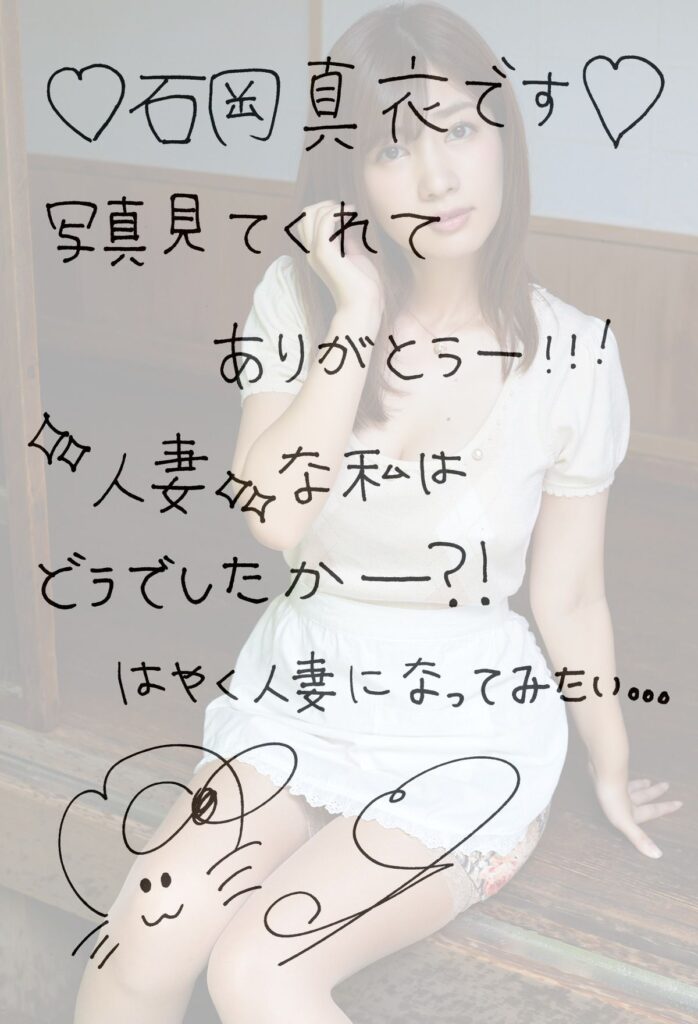 ♡石岡真衣です♡
写真見てくれて
ありがとうー!!!
人妻な私は
どうでしたかー?!
はやく人妻になってみたい...